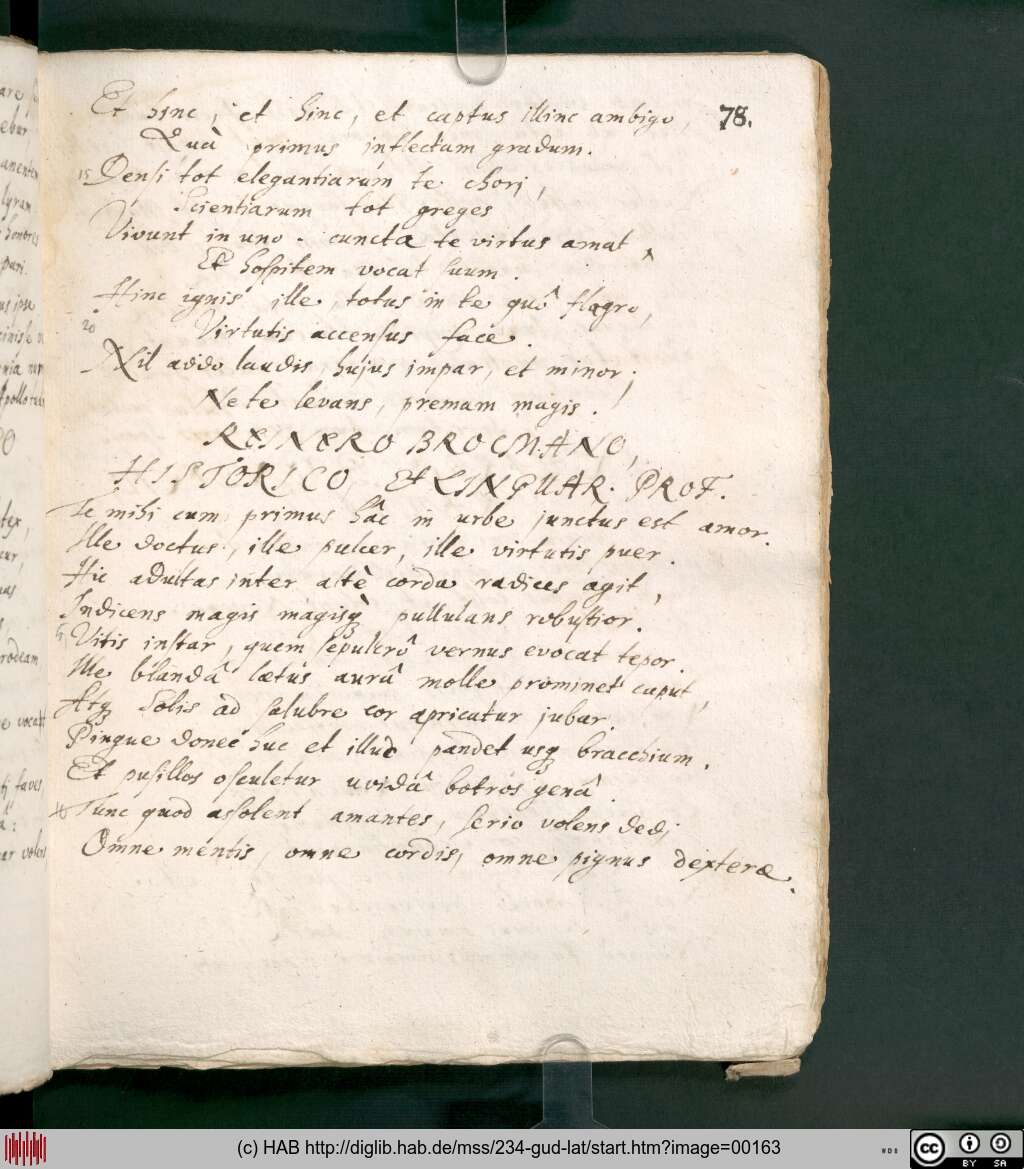 Et hinc, et hinc, et captus illinc ambigo, 78.
Quà primus inflectam gradum.
15 Densi tot elegantiarum te chori,
Scientiarum tot greges
Vivunt in uno. cuncta te virtus amat,
Et hospitem vocat suum.
Hinc ignis ille, totus in te quô flagro,
20 Virtutis accensus face.
Nil addo laudis, hujus impar, et minor;
Ne te levans, premam magis.
REINERO BROCMANO,
HISTORICO Et LINGUAR. PROF.
Te mihi cum primus hâc in urbe junctus est amor.
Ille doctus, ille pulcer, ille virtutis puer.
Hic adultas inter altè corda radices agit,
Indicens magis magisq; pullulans robustior.
5 Vitis instar, quem sepulcrô vernus evocat tepor.
Ille blandâ lætus aurâ molle prominet caput,
Atq; Solis ad salubre cor apricatur jubar.
Pingue donec huc et illuc pandet usq; bracchium.
Et pusillos osculetur uvidâ botros genâ.
10 Tunc quod assolent amantes, serio volens dedi
Omne mentis, omne cordis, omne pignus dexteræ.
are
ebur
lyram
honores
pari.
us ipse
Apollo
tex,
cur,
rodeam
e vocat
faves,
volens
(c) HAB http://diglib.hab.de/mss/234-gud-lat/start.htm?image=00163
WDB
cc BY SA